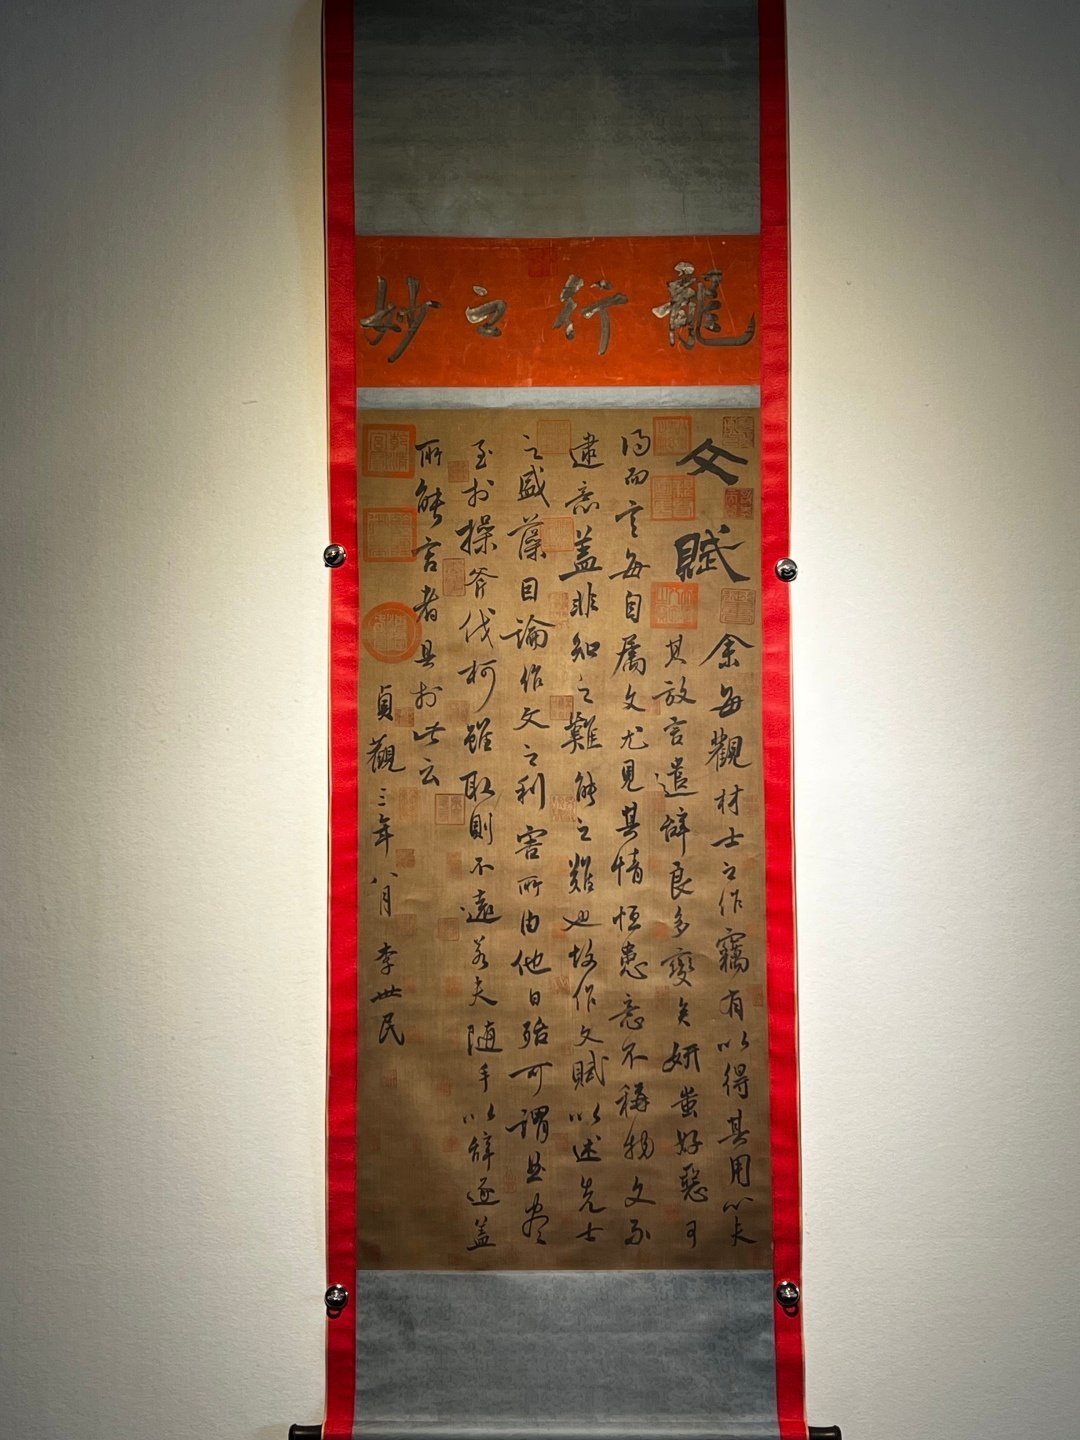 龍行之妙
文賦 余每觀材士之作竊有以得其用心夫
其放言遣辭良多變矣妍蚩好惡可
得而言每自屬文尤見其情恒患意不稱物文不
逮意蓋非知之難能之難也故作文賦以述先士
之盛藻因論作文之利害所由他日殆可謂曲盡
至於操斧伐柯雖取則不遠若夫随手以辭逐蓋
所能言者具於此云
貞觀三年八月 李世民